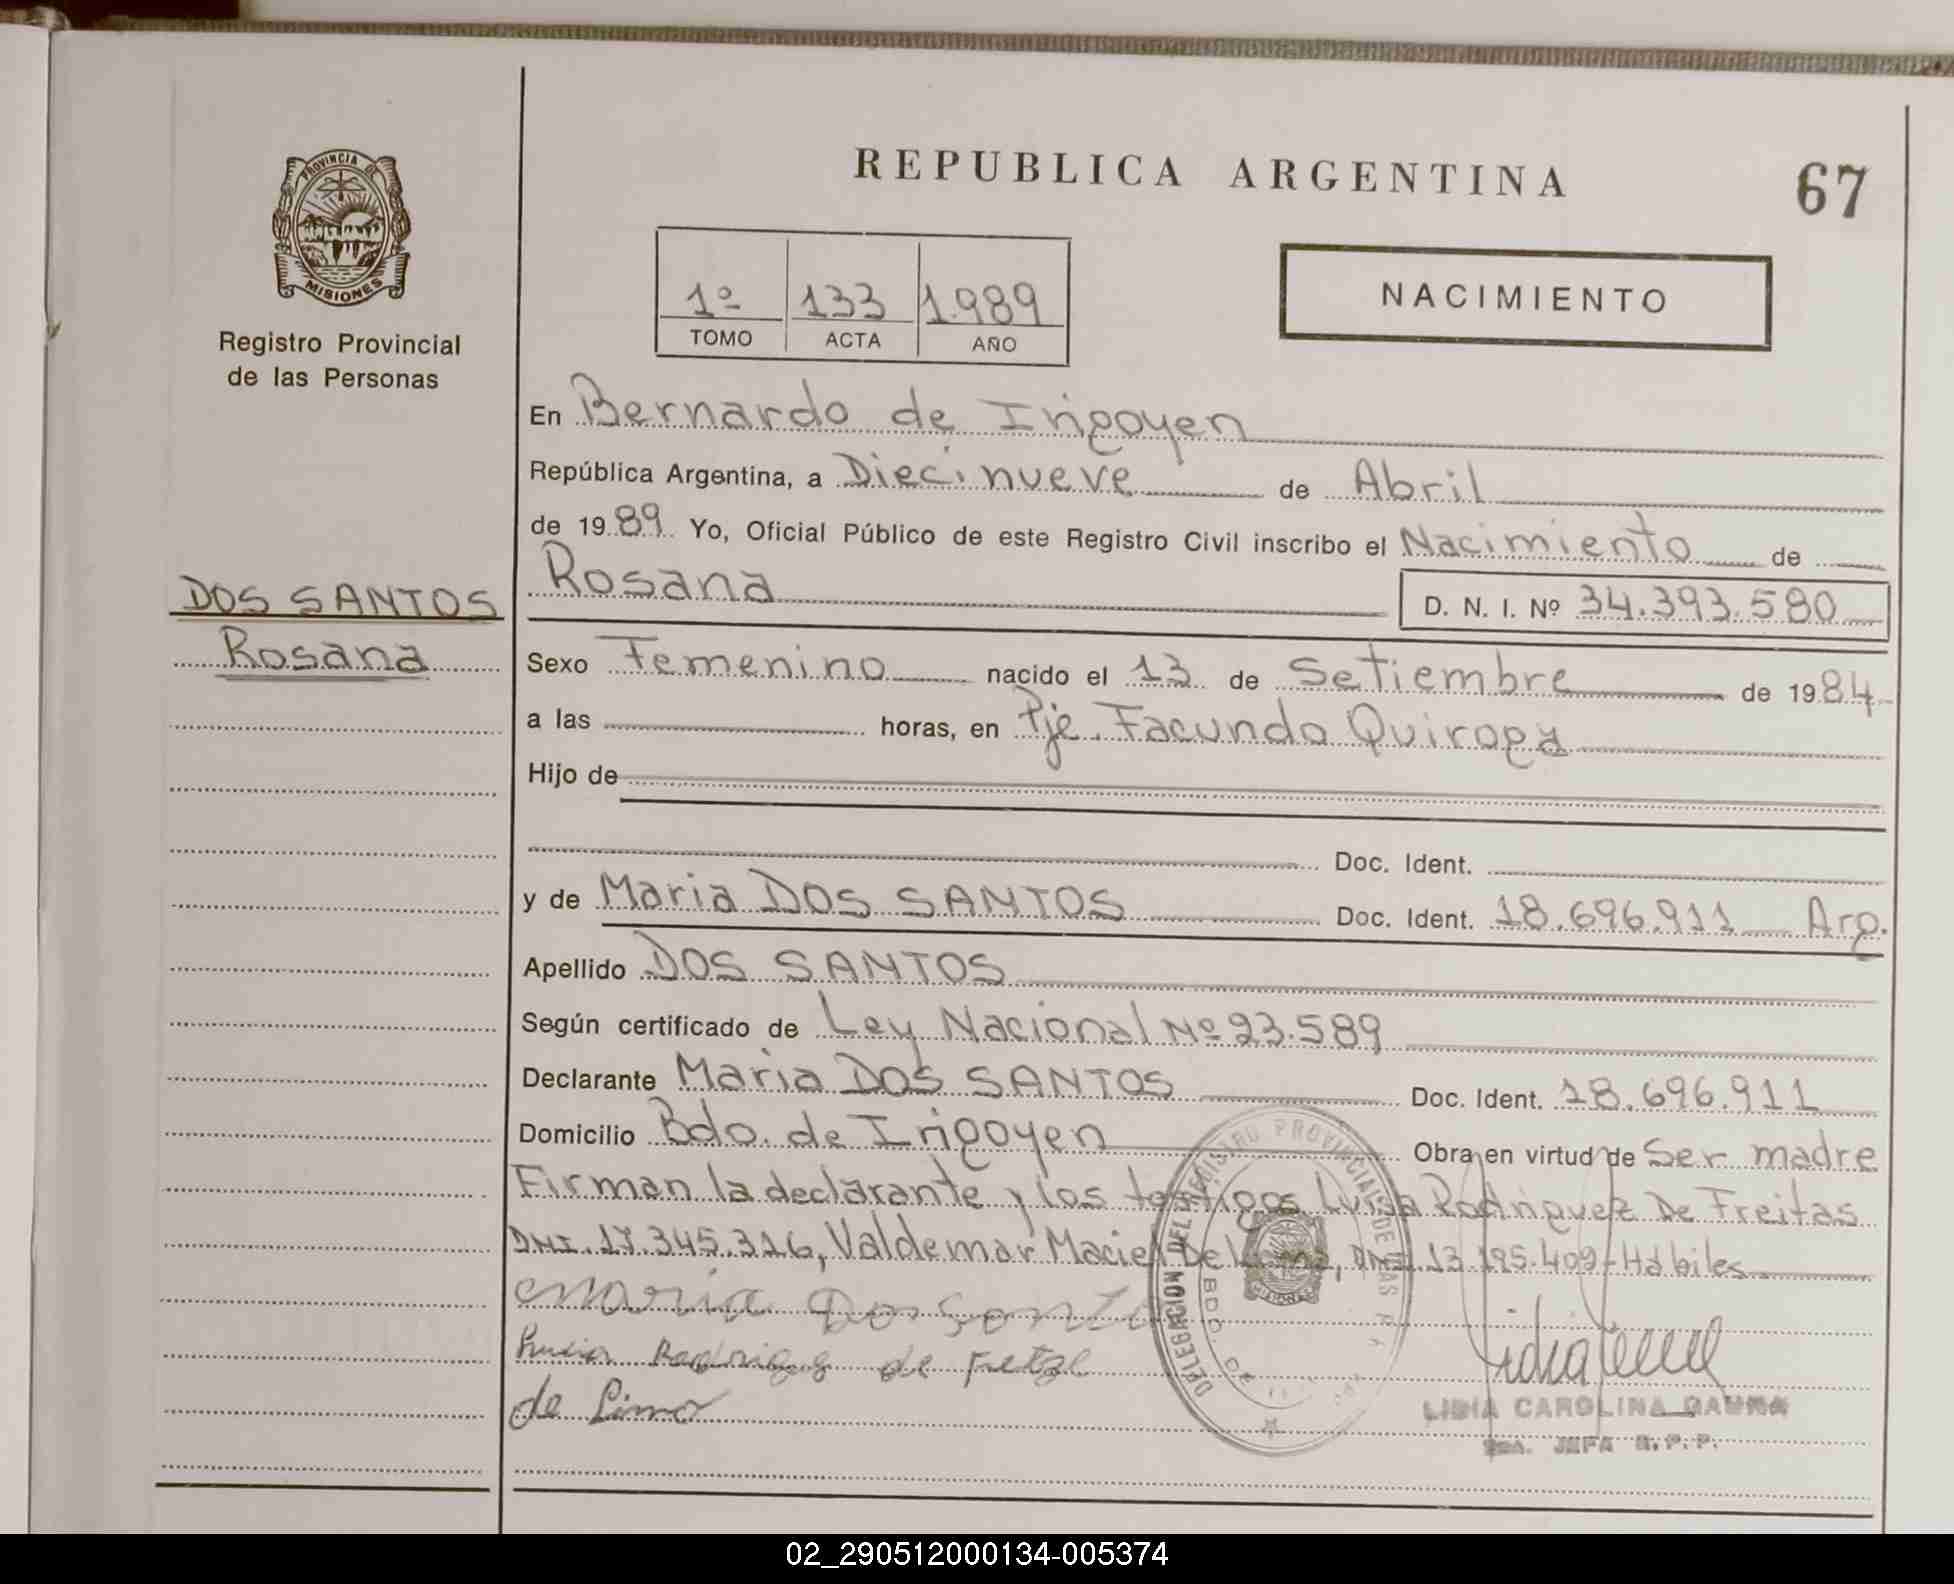 PROVINCIA DE
MISIONES
Registro Provincial
de las Personas
DOS SANTOS
Rosana
REPUBLICA ARGENTINA
67
1º 133 1.989
TOMO ACTA AÑO
NACIMIENTO
En Bernardo de Irigoyen
República Argentina, a Diecinueve de Abril
de 1989 Yo, Oficial Público de este Registro Civil inscribo el Nacimiento de
Rosana D. N. I. Nº 34.393.580
Sexo Femenino nacido el 13 de Setiembre de 1984
a las horas, en Pje. Facundo Quiroga
Hijo de
Doc. Ident.
y de Maria DOS SANTOS Doc. Ident. 18.696.911 Arg.
Apellido DOS SANTOS
Según certificado de Ley Nacional Nº 23.589
Declarante Maria DOS SANTOS Doc. Ident. 18.696.911
Domicilio Bdo. de Irigoyen Obra en virtud de Ser madre
Firman la declarante y los testigos Luisa Rodriguez De Freitas
DNI. 17.345.316, Valdemar Maciel De Lima, DNI. 13.195.409-Hábiles
Maria Dos
de Lima
DELEGACION DEL REGISTRO PROVINCIAL DE LAS
BDO. DE
LIDIA CAROLINA
JEFA R.P.P.
02_290512000134-005374